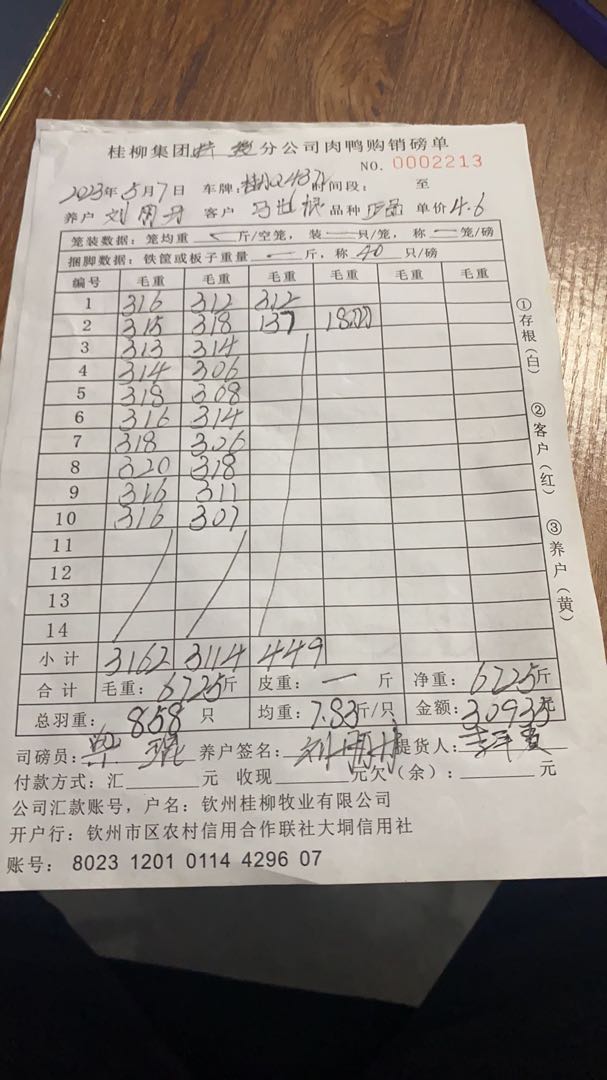 桂柳集团 分公司肉鸭购销磅单
NO. 0002213
2023年5月7日 车牌: 时间段: 至
养户 刘 客户 马 品种 正品 单价 4.6
笼装数据:笼均重 斤/空笼,装 — 只/笼,称 — 笼/磅
捆脚数据:铁筐或板子重量 — 斤,称 40 只/磅
编号 毛重 毛重 毛重 毛重 毛重 毛重
1 316 312 312
2 315 318 137
3 313 314
4 314 306
5 318 308
6 316 314
7 318 306
8 320 318
9 316 311
10 316 307
11
12
13
14
小计 3162 3114 449
合计 毛重:6725斤 皮重:— 斤 净重:6725斤
总羽重:858 只 均重:7.83斤/只 金额:30935元
司磅员: 养户签名: 提货人:
付款方式:汇 元 收现 元欠(余): 元
公司汇款账号,户名:钦州桂柳牧业有限公司
开户行:钦州市区农村信用合作联社大垌信用社
账号:8023 1201 0114 4296 07
①存根(白)
②客户(红)
③养户(黄)